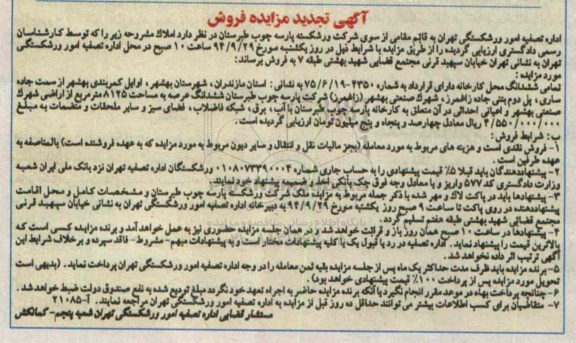 آگهی تجدید مزایده فروش
اداره تصفیه امور ورشکستگی تهران به قائم مقامی از سوی شرکت ورشکسته پارسه چوب طبرستان در نظر دارد املاک مشروحه زیر را که توسط کارشناسان
رسمی دادگستری ارزیابی گردیده را از طریق مزایده با شرایط ذیل در روز یکشنبه مورخ ۹۴/۹/۲۹ ساعت ۱۰ صبح در محل اداره تصفیه امور ورشکستگی
تهران به نشانی تهران خیابان سپهبد قرنی مجتمع قضایی شهید بهشتی طبقه ۷ به فروش برساند:
مورد مزایده :
تمامی ششدانگ محل کارخانه دارای قرارداد به شماره ۴۳۵۰-۷۵/۶/۱۹ به نشانی : استان مازندران، شهرستان بهشهر، اوایل کمربندی بهشهر از سمت جاده
ساری، پل دوم بتنی جاده زاغمرز، شهرک صنعتی بهشهر (زاغمرز) شرکت پارسه چوب طبرستان ششدانگ عرصه به مساحت ۸۱۲۵ مترمربع از اراضی شهرک
صنعتی بهشهر و اعیانی احداثی در آن متعلق به کارخانه پارسه چوب طبرستان با آب، برق، شبکه فاضلاب، فضای سبز و سایر ملحقات و منضمات به مبلغ
۴/۵۵۰/۰۰۰/۰۰۰ ریال معادل چهارصد و پنجاه و پنج میلیون تومان ارزیابی گردیده است.
ب: شرایط فروش :
۱- فروش نقدی است و هزینه های مربوط به مورد معامله (بجز مالیات نقل و انتقال و سایر دیون مربوط به مورد مزایده که به عهده فروشنده است) بالمناصفه به
عهده طرفین است .
۲- پیشنهاددهندگان باید قبلا ۵٪ قیمت پیشنهادی را به حساب جاری شماره ۰۱۰۸۰۷۳۳۹۰۰۰۴ ورشکستگان اداره تصفیه تهران نزد بانک ملی ایران شعبه
وزارت دادگستری کد ۵۷۷ واریز و یا معادل وجه فوق چک بانکی اخذ و ضمیمه پیشنهاد خود نمایند.
۳- پیشنهادها باید در پاکت لاک و مهر شده با ذکر جمله مربوط به مزایده ملک شرکت ورشکسته پارسه چوب طبرستان و مشخصات کامل و محل اقامت
پیشنهاددهنده در روی پاکت تا ساعت ۹ صبح روز یکشنبه مورخ ۹۴/۹/۲۹ به دبیرخانه اداره تصفیه امور ورشکستگی تهران به نشانی خیابان سپهبد قرنی
مجتمع قضایی شهید بهشتی طبقه هفتم تسلیم گردد.
۴- پیشنهادها در ساعت ۱۰ صبح همان روز باز و قرائت خواهد شد و در همان جلسه مزایده حضوری نیز به عمل خواهد آمد و برنده مزایده کسی است که
بالاترین قیمت را پیشنهاد نماید. اداره تصفیه در رد یا قبول یک یا کلیه پیشنهادات مختار است و به پیشنهادات مبهم- مشروط- فاقد سپرده و برخلاف شرایط این
آگهی ترتیب اثر داده نخواهد شد.
۵- برنده مزایده باید ظرف مدت حداکثر یک ماه پس از جلسه مزایده بقیه ثمن معامله را در وجه اداره تصفیه امور ورشکستگی تهران پرداخت نماید. (بدیهی است
تحویل مورد مزایده پس از پرداخت ۱۰۰٪ قیمت پیشنهادی خواهد بود)
۶- چنانچه پرداخت بهاء در موعد مقرر انجام نگیرد یا آنکه برنده مزایده حاضر به اجراء تعهد خود نگردد مبلغ تودیع شده به نفع صندوق دولت ضبط خواهد شد.
۷- متقاضیان برای کسب اطلاعات بیشتر می توانند حداقل ده روز قبل از مزایده به اداره تصفیه امور ورشکستگی تهران مراجعه نمایند. آ-۲۱۰۸۵
مستشار قضایی اداره تصفیه امور ورشکستگی تهران شعبه پنجم-